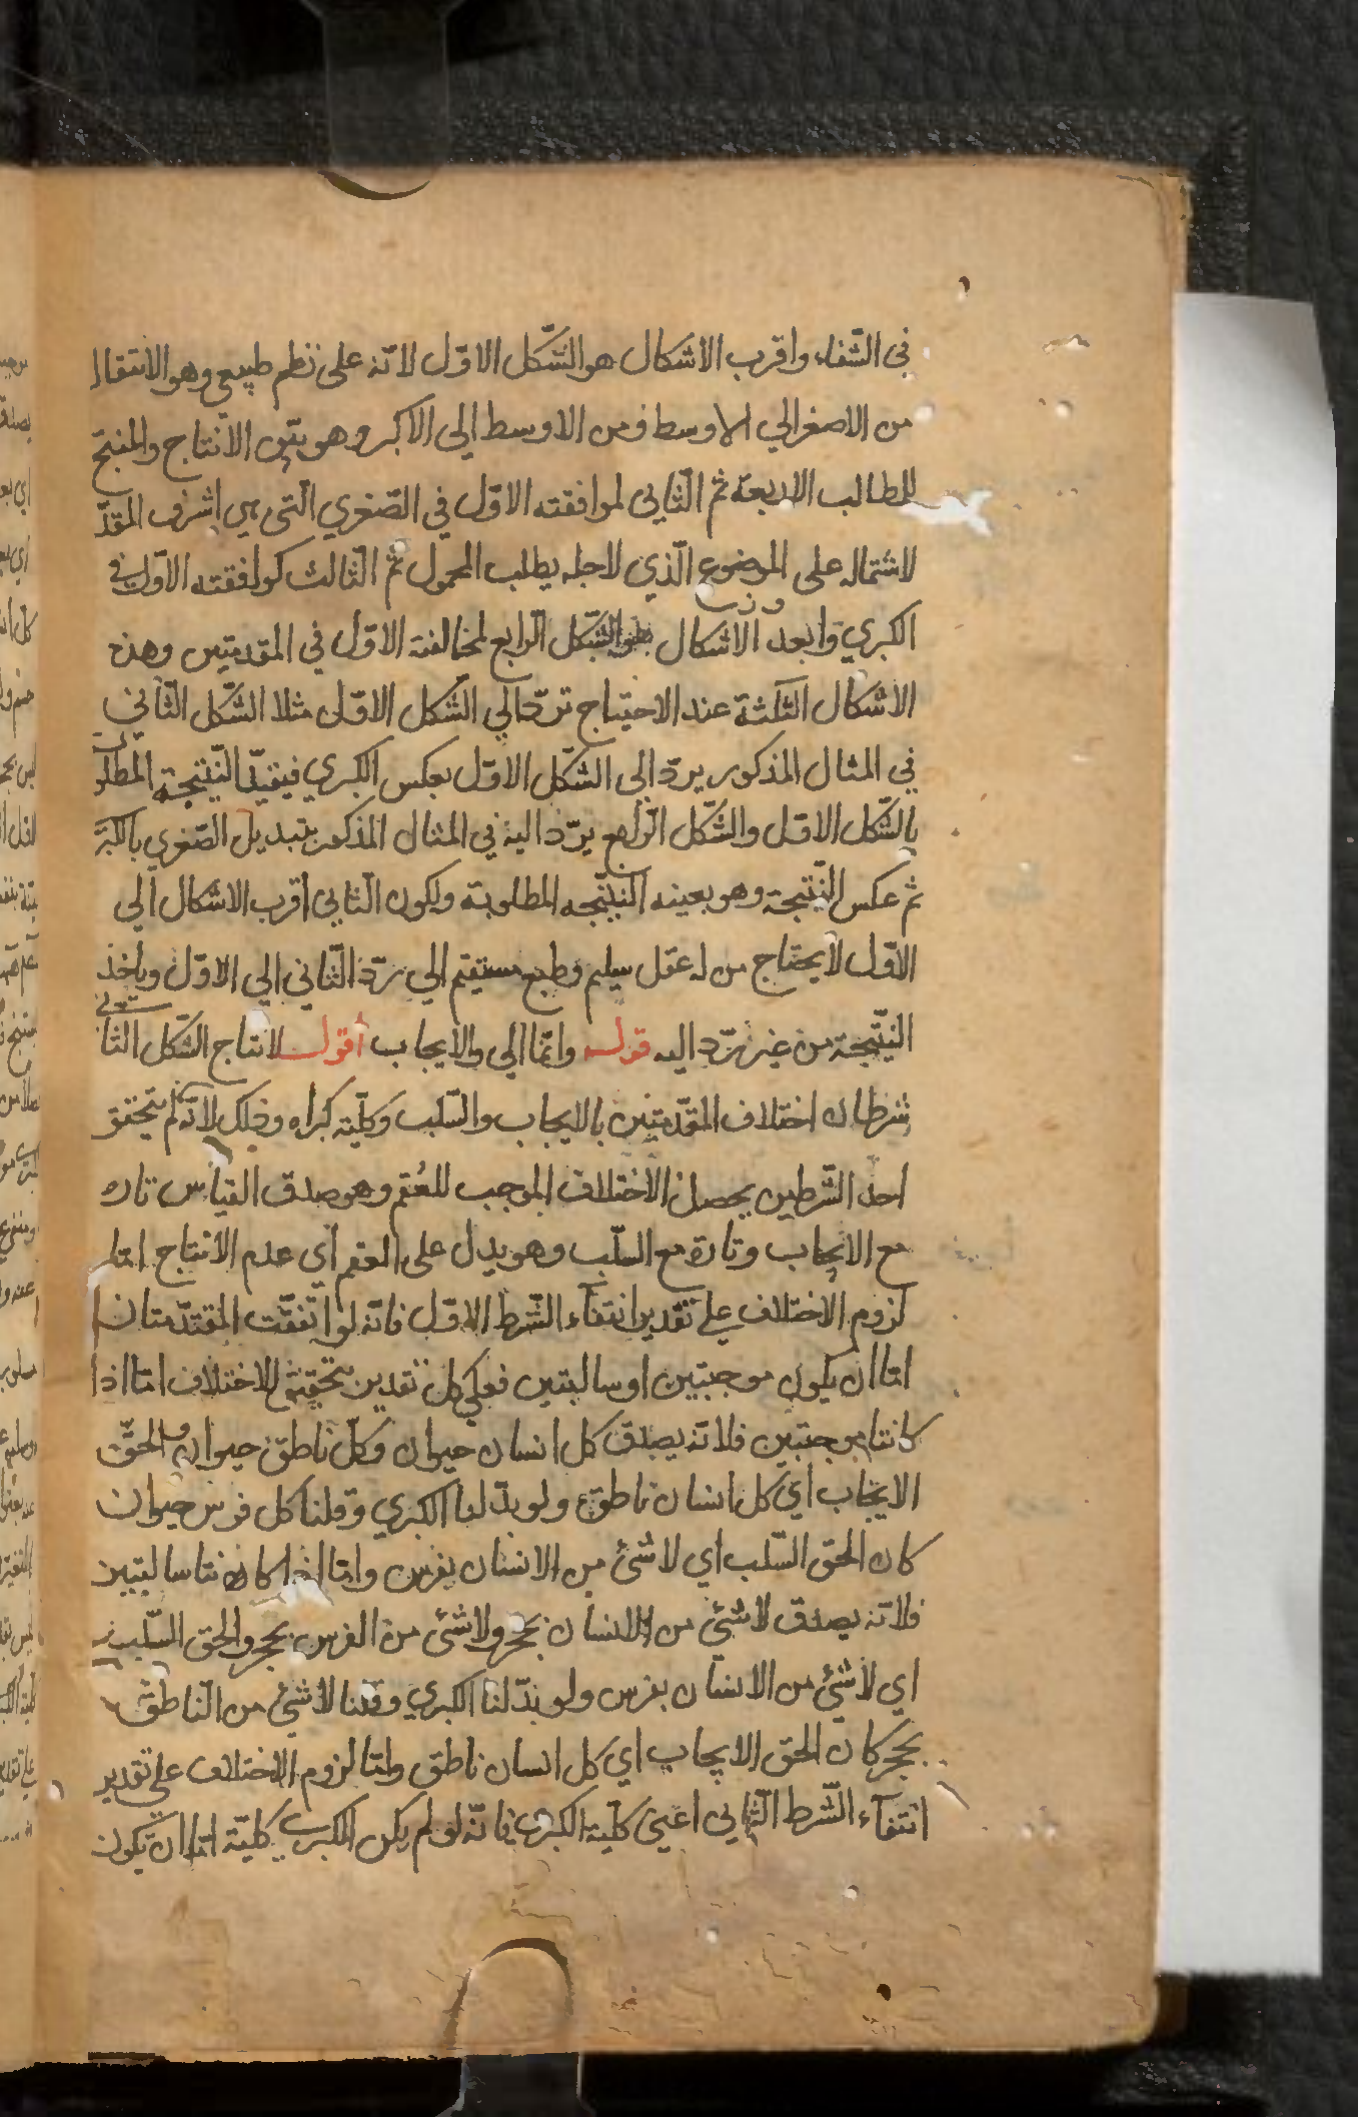 في الشفاء واقرب الاشكال هو الشّكل الاوّل لانّه على نظم طبيعي وهو الانتقال
من الاصغر الي الاوسط ومن الاوسط الى الاكبر وهو بيّن الانتاج والمنتج
للمطالب الاربعة ثم الثّاني لموافقته الاوّل في الصّغري الّتي هي اشرف المقدّ
لاشتماله على الموضوع الّذي لاجله يطلب المحمول ثم الثّالث لموافقته الاوّل في
الكبري وابعد الاشكال هو الشّكل الرّابع لمخالفته الاوّل في المقدمتين وهذه
الاشكال الثلثة عند الاحتياج تردّ الي الشّكل الاوّل مثلا الشّكل الثّاني
في المثال المذكور يردّ الى الشّكل الاوّل بعكس الكبري النّتيجة المطلو
بالشّكل الاوّل والشّكل الرّابع يردّ اليه في المثال المذكور بتبديل الصّغرى بالكبر
ثم عكس النّتيجة وهو بعينه النّتيجه المطلوبة ولكون الثّاني اقرب الاشكال الي
الاوّل لا يحتاج من له عقل سليم وطبع مستقيم الي ردّ الثّاني الي الاوّل وياخذ
النّتيجة من غير ردّ اليه قوله وانّما الي والايجاب أقول لانتاج الشّكل الثا
شرطان اختلاف المقدّمتين بالايجاب والسّلب وكلّية كبراه وذلك لانّه لم يتحقق
احد الشّرطين يحصل الاختلاف الموجب للعُقم وهو صدق القياس تاره
مع الايجاب وتارة مع السّلب وهو يدل على العقم أي عدم الانتاج امّا
لزوم الاختلاف على تقدير انتفآء الشّرط الاوّل فانّه لو اتّفقت المقدّمتان
امّا ان يكون موجبتين او سالبتين فعلى كل تقدير يتحقق الاختلاف امّا اذا
كانتا موجبتين فلانّه يصدق كل انسان حيوان وكلّ ناطق حيوان والحقّ
الايجاب أي كل انسان ناطق ولو بدّلنا الكبري وقلنا كل فرس حيوان
كان الحق السّلب اي لا شئ من الانسان بفرس وامّا اذا كانتا سالبتين
فلانّه يصدق لا شئ من الانسان بحجر ولا شئ من الفرس بحجر والحق السّلب
اي لا شئ من الانسان بفرس ولو بدّلنا الكبري وقلنا لا شئ من النّاطق
بحجر كان الحق الايجاب اي كل انسان ناطق وامّا لزوم الاختلاف على تقدير
انتفآء الشّرط الثّاني اعني كلّية الكبرى فانّه لو لم يكن الكبرى كليّة امّا ان يكون